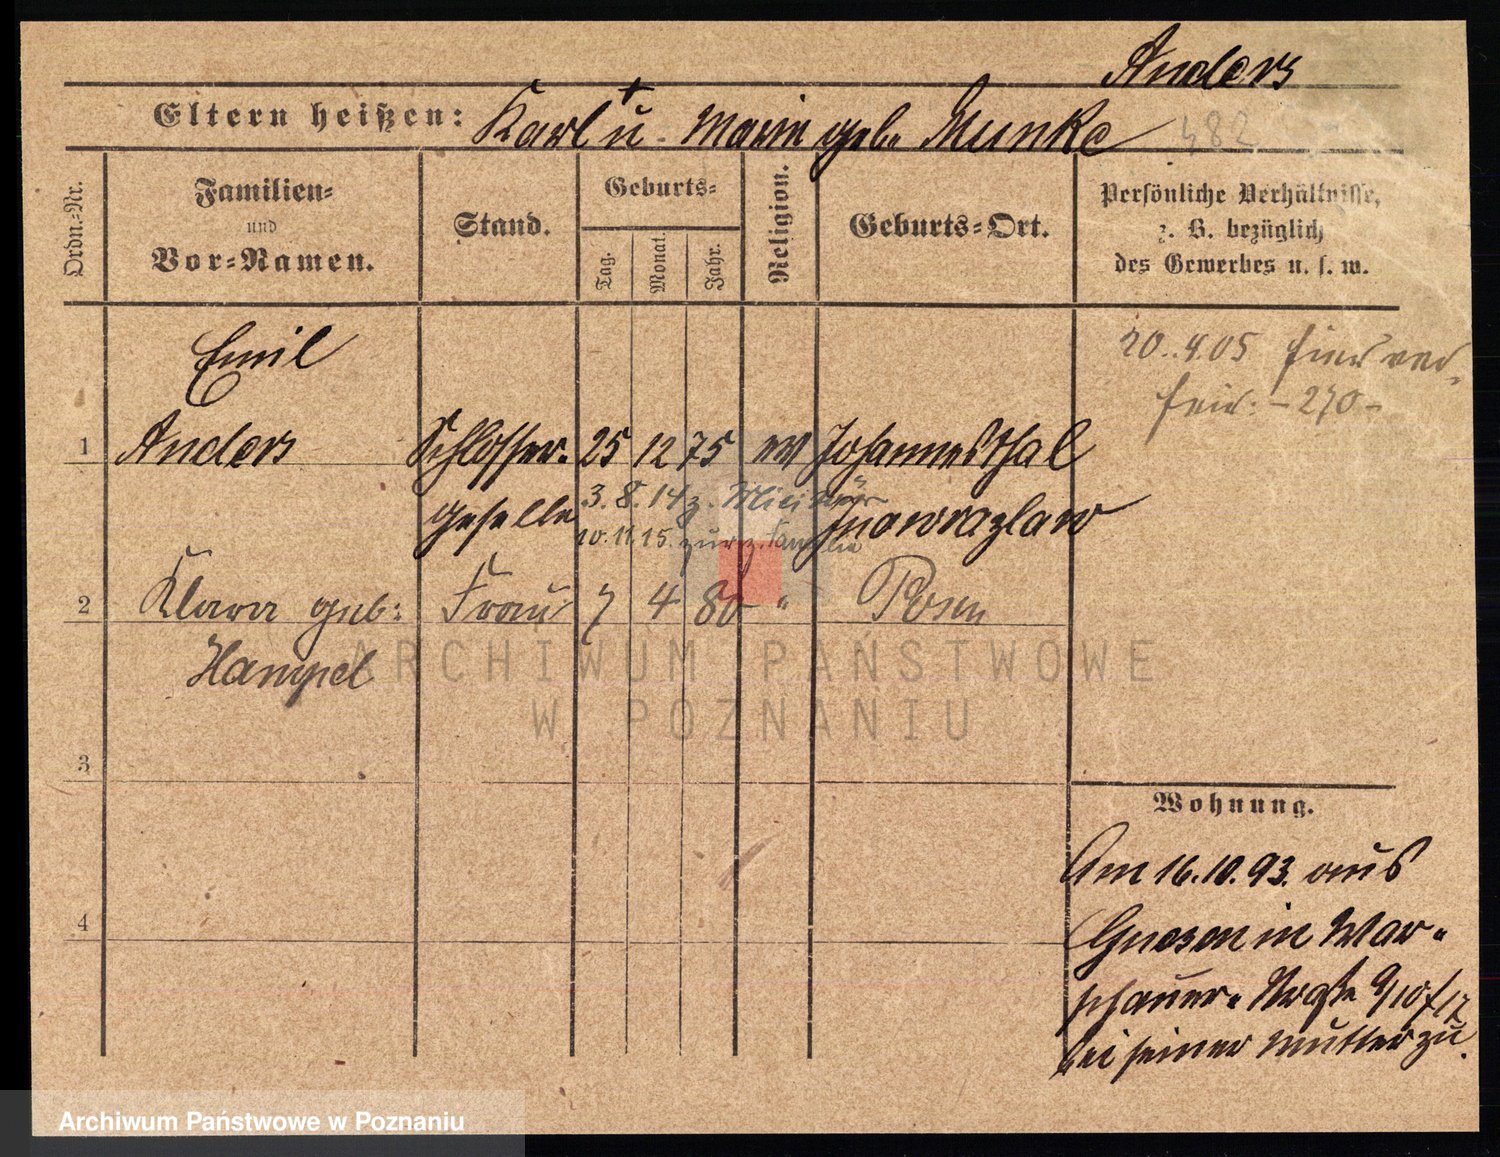 Anders
Eltern heißen: Karl † u. Marie geb. Munke
482
Ordn.-Nr.
Familien-
und
Vor-Namen.
Stand.
Geburts-
Tag.
Monat.
Jahr.
Religion.
Geburts-Ort.
Persönliche Verhältnisse,
z. B. bezüglich
des Gewerbes u. s. w.
Emil
20.4.05 hier ver
heir: -270-
1 Anders Schlosser- 25 12 75 ev Johannesthal
3. 8. 14 z. Militär
geselle Inowrazlaw
10. 11. 15. zur. z. Familie
2 Klara geb: Frau 7 4 80 " Posen
Hampel
ARCHIWUM PAŃSTWOWE
W POZNANIU
3
Wohnung.
Am 16.10.93. aus
4 Gnesen in War-
schauer-Straße 9/10 f 17
bei seiner Mutter zu.
Archiwum Państwowe w Poznaniu